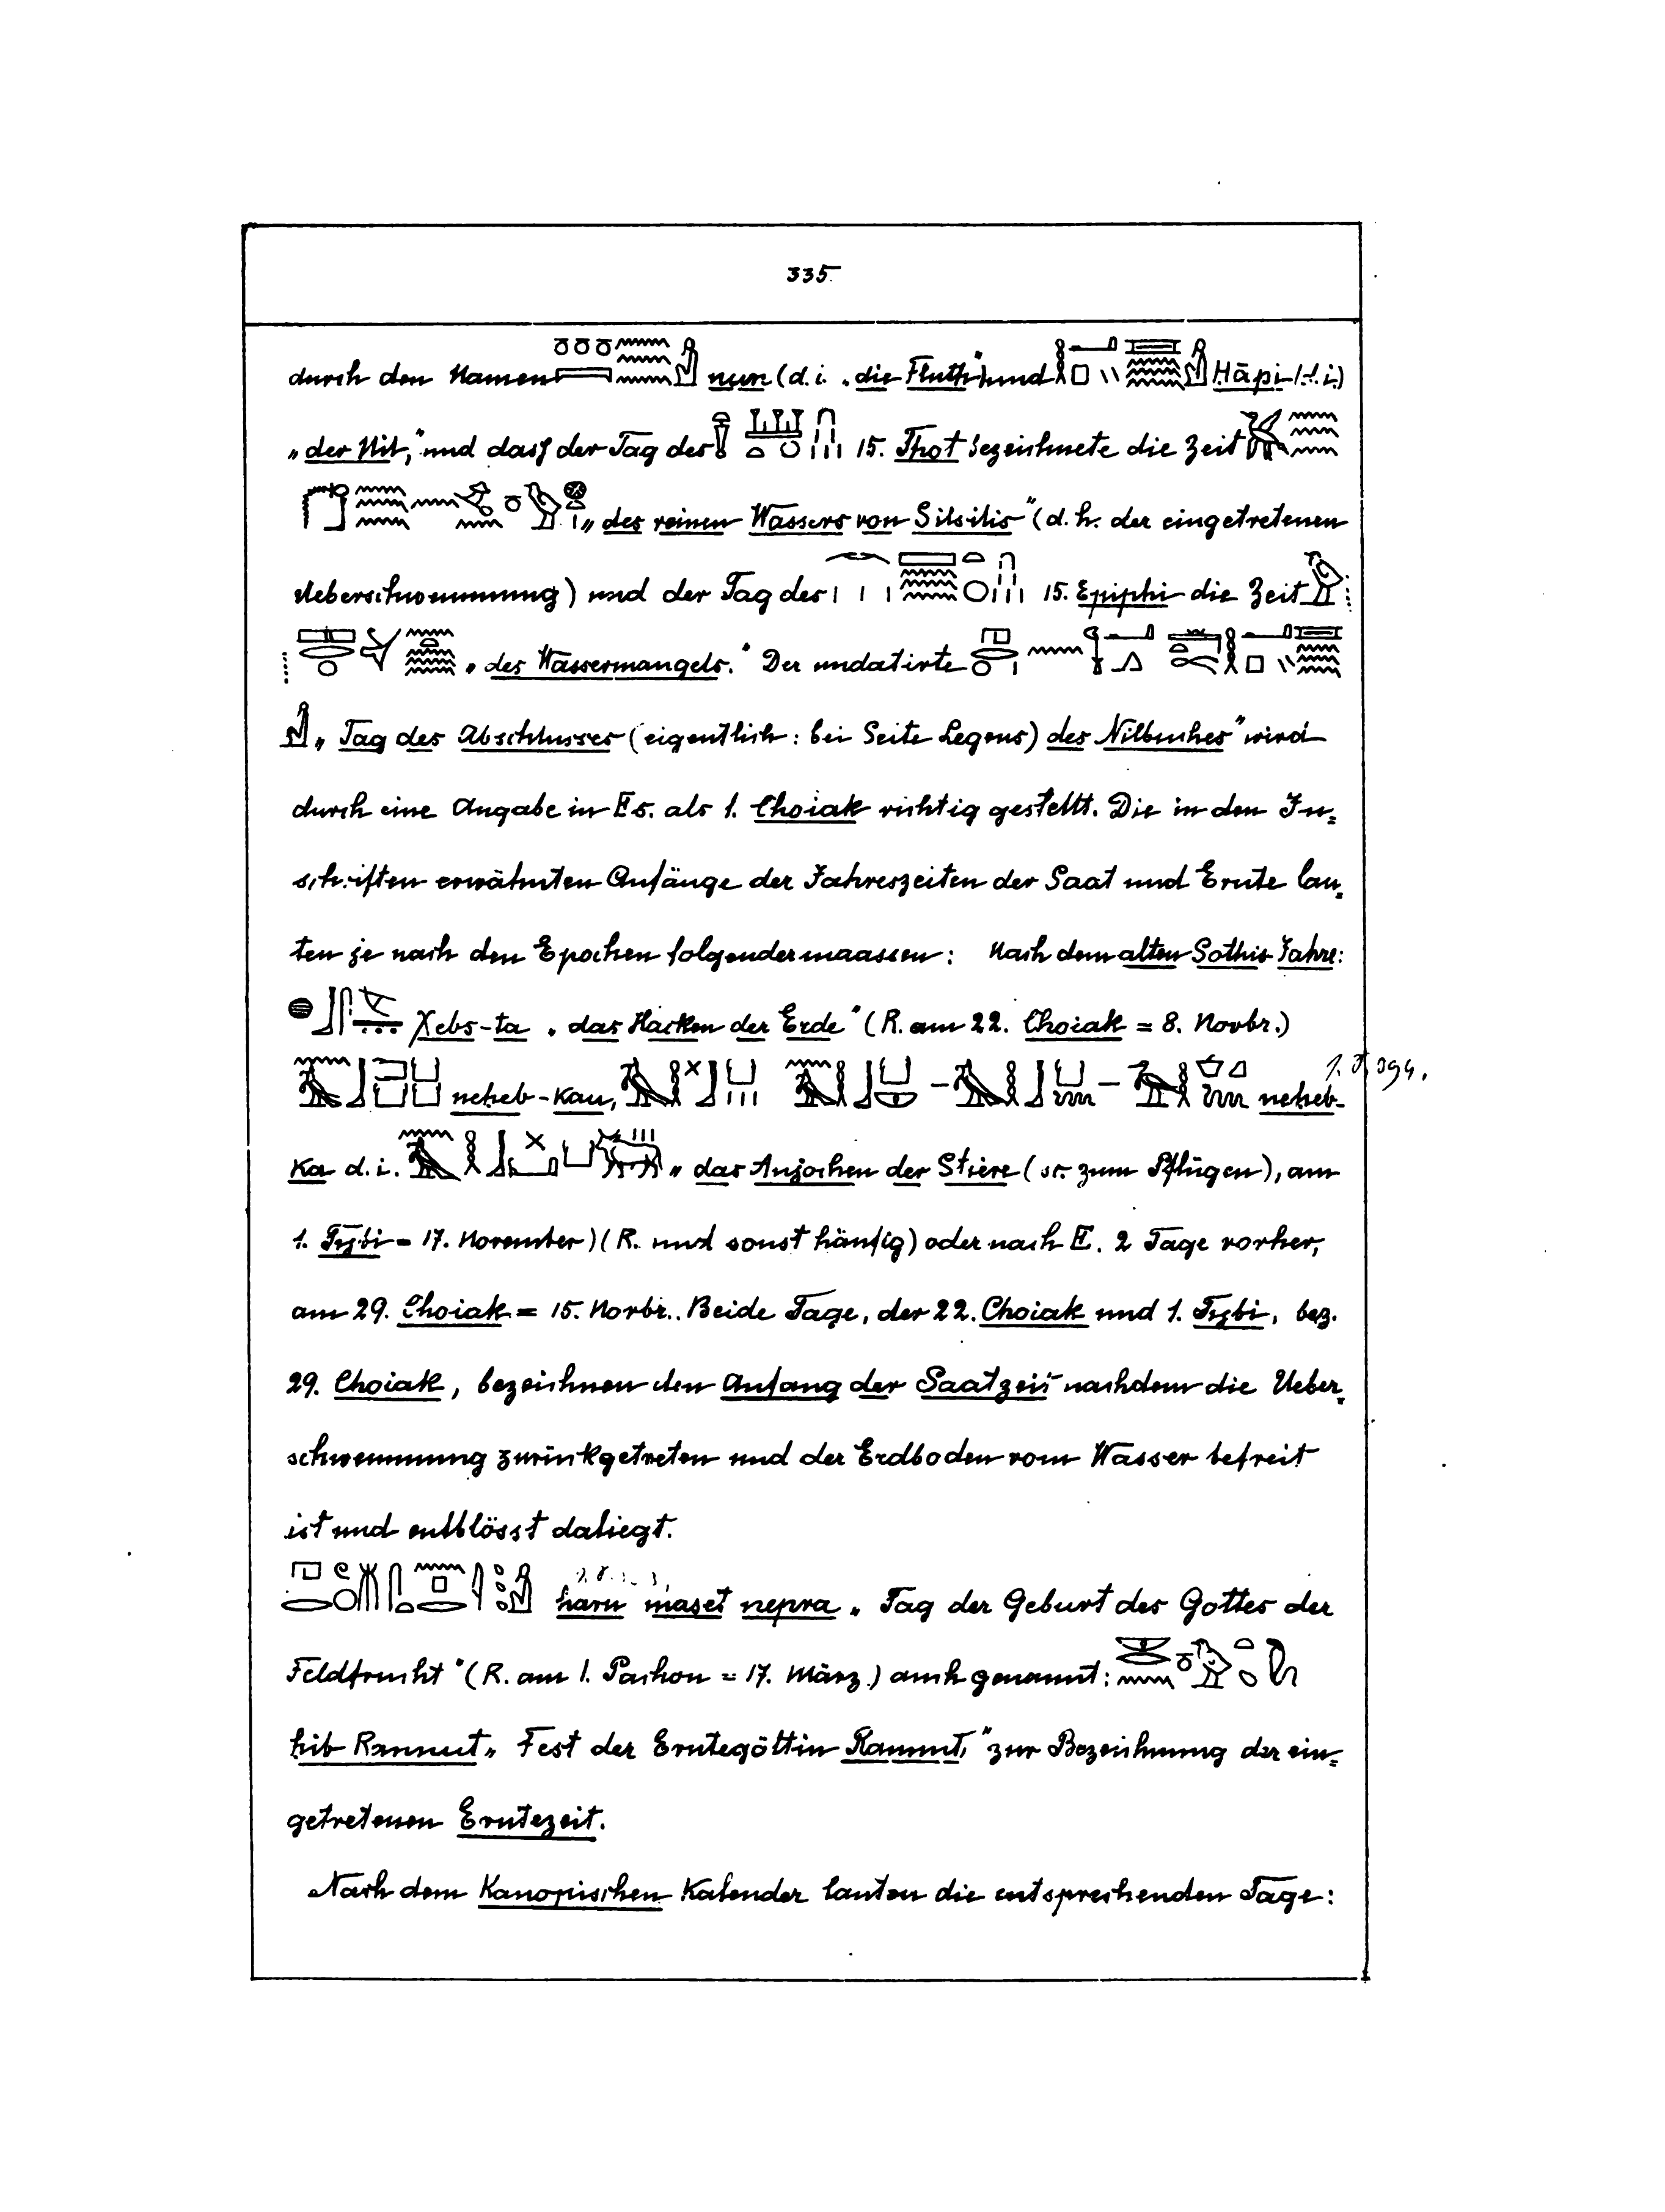 335.
durch den Namen 𓏌𓏌𓏌𓇯𓈗𓀭 nun (d. i. „die Fluth") und 𓎛𓂝𓊪𓏭𓈘𓈗𓀭 Hāpi (d. i.)
„der Nil," und dass der Tag des 15. Thot bezeichnete die Zeit
„des reinen Wassers von Silsilis" (d. h. der eingetretenen
Ueberschwemmung) und der Tag des 15. Epiphi die Zeit
„des Wassermangels." Der undatirte
„Tag des Abschlusses (eigentlich: bei Seite Legens) des Nilbuches" wird
durch eine Angabe in Es. als 1. Choiak richtig gestellt. Die in den In=
schriften erwähnten Anfänge der Jahreszeiten der Saat und Ernte lau=
ten je nach den Epochen folgendermaassen: Nach dem alten Sothis-Jahre:
Xebs-ta „das Hacken der Erde" (R. am 22. Choiak = 8. Novbr.)
neheb-kau, neheb-
ka d. i. „das Anjochen der Stiere (sc. zum Pflügen), am
1. Tybi = 17. November) (R. und sonst häufig) oder nach E. 2 Tage vorher,
am 29. Choiak = 15. Novbr.. Beide Tage, der 22. Choiak und 1. Tybi, bez.
29. Choiak, bezeichnen den Anfang der Saatzeit nachdem die Ueber=
schwemmung zurückgetreten und der Erdboden vom Wasser befreit
ist und entblösst daliegt.
haru maset nepra „Tag der Geburt des Gottes der
Feldfrucht" (R. am 1. Pachon = 17. März.) auch genannt:
hib Rannut „Fest der Erntegöttin Rannut," zur Bezeichnung der ein=
getretenen Erntezeit.
Nach dem Kanopischen Kalender lauten die entsprechenden Tage: